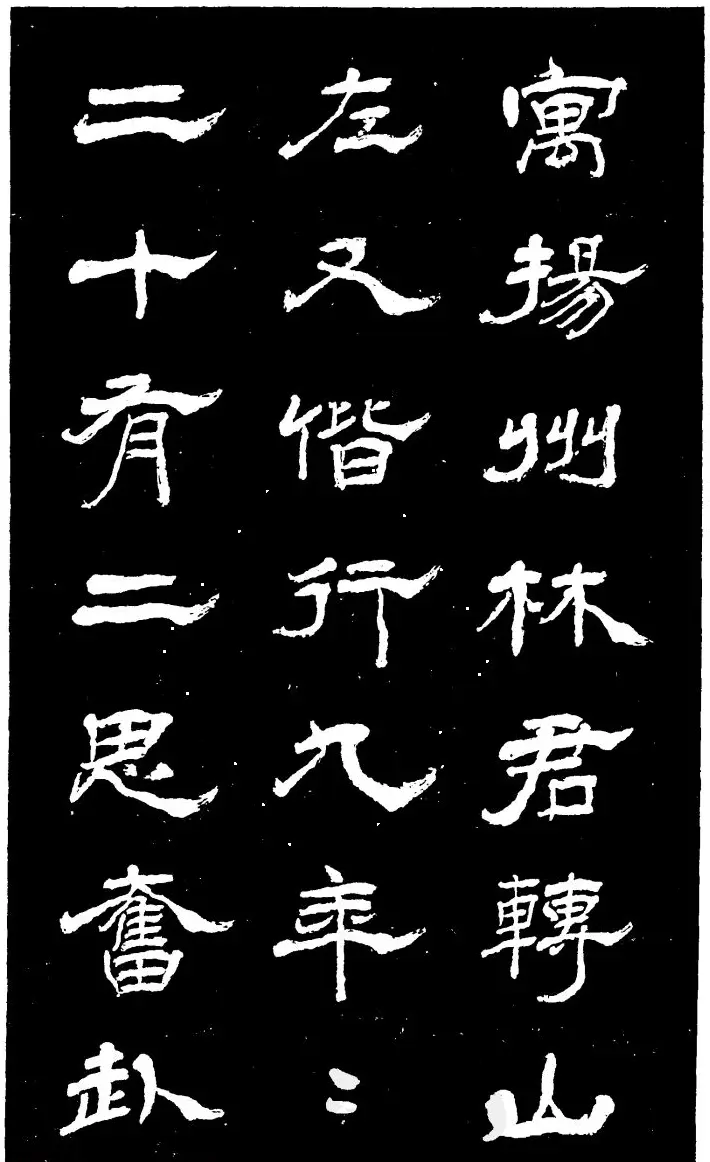 寓揚州林君轉山
左又偕行九年〻
二十有二思奮赴